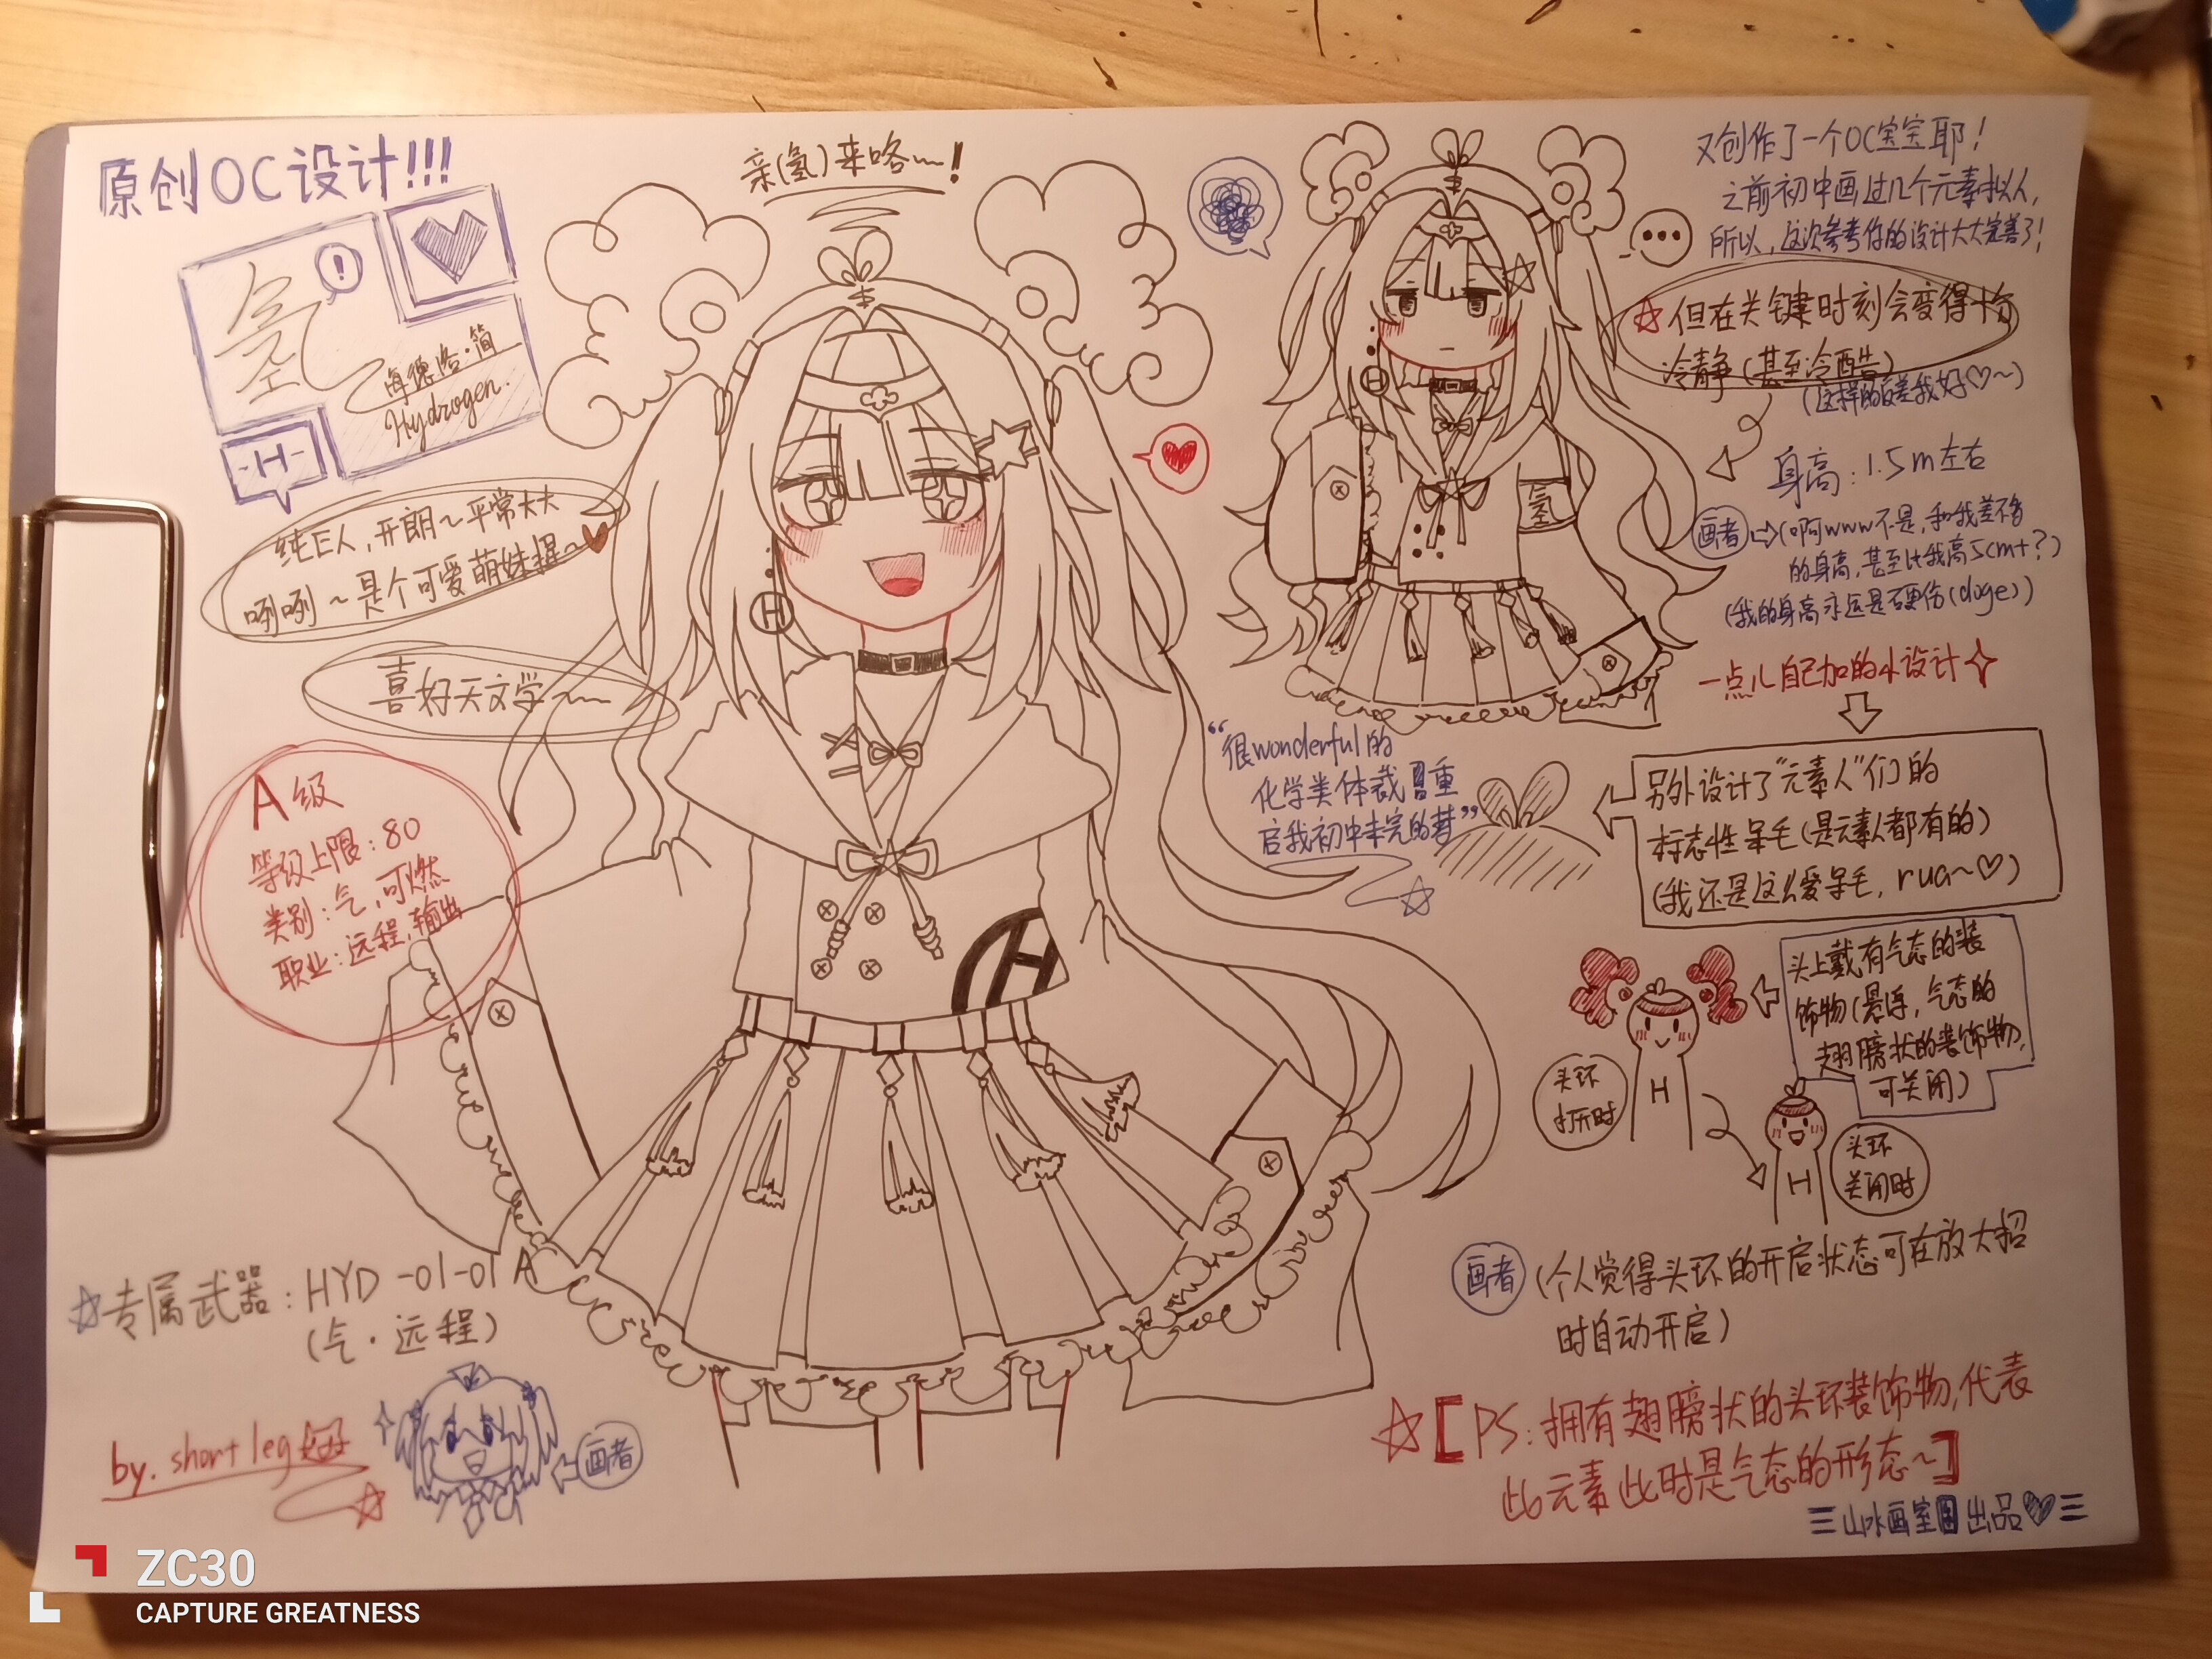 原创OC设计!!!
氢
!
海德洛·简
Hydrogen.
-H-
亲(氢)来咯~~!
纯E人,开朗~平常大大
咧咧~是个可爱萌妹捏~
喜好天文学~~
A级
等级上限:80
类别:气,可燃
职业:远程,输出
H
H
☆专属武器:HYD-01-01A
(气·远程)
by. short leg
画者
又创作了一个OC宝宝耶!
之前初中画过几个元素拟人,
所以,这次参考你的设计大大完善了!
☆但在关键时刻会变得十分
冷静(甚至冷酷)
(这样的反差我好♡~)
H
氢
身高:1.5m左右
画者⇨(啊www不是,和我差不多
的身高,甚至比我高5cm+?)
(我的身高永远是硬伤(doge))
一点儿自己加的小设计
“很wonderful的
化学类体裁 重
启我初中未完的梦”
另外设计了“元素人”们的
标志性呆毛(是元素人都有的)
(我还是这么爱呆毛,rua~♡)
头上戴有气态的装
饰物(悬浮,气态的
翅膀状的装饰物,
可关闭)
头环
打开时
H
头环
关闭时
H
画者(个人觉得头环的开启状态可在放大招
时自动开启)
☆[PS:拥有翅膀状的头环装饰物,代表
此元素此时是气态的形态~]
三山水画室 出品♡三
ZC30
CAPTURE GREATNESS